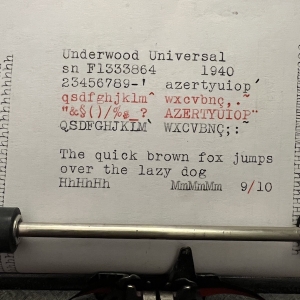 Underwood Universal
sn F1333864 1940
23456789-' azertyuiop´
qsdfghjklm^ wxcvbnç,.~
"&§()/%s_? AZERTYUIOP¨
QSDFGHJKLM` WXCVBNÇ;:~
The quick brown fox jumps
over the lazy dog
HhHhHh MmMmMm 9/10